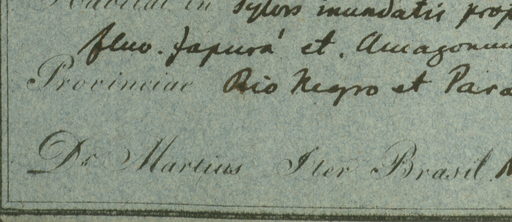 Habitat in Sylvis inundatis prop
fluv. Japurá et. Amazonum
Provinciae Rio Negro et Para
Dr Martius Iter Brasil.